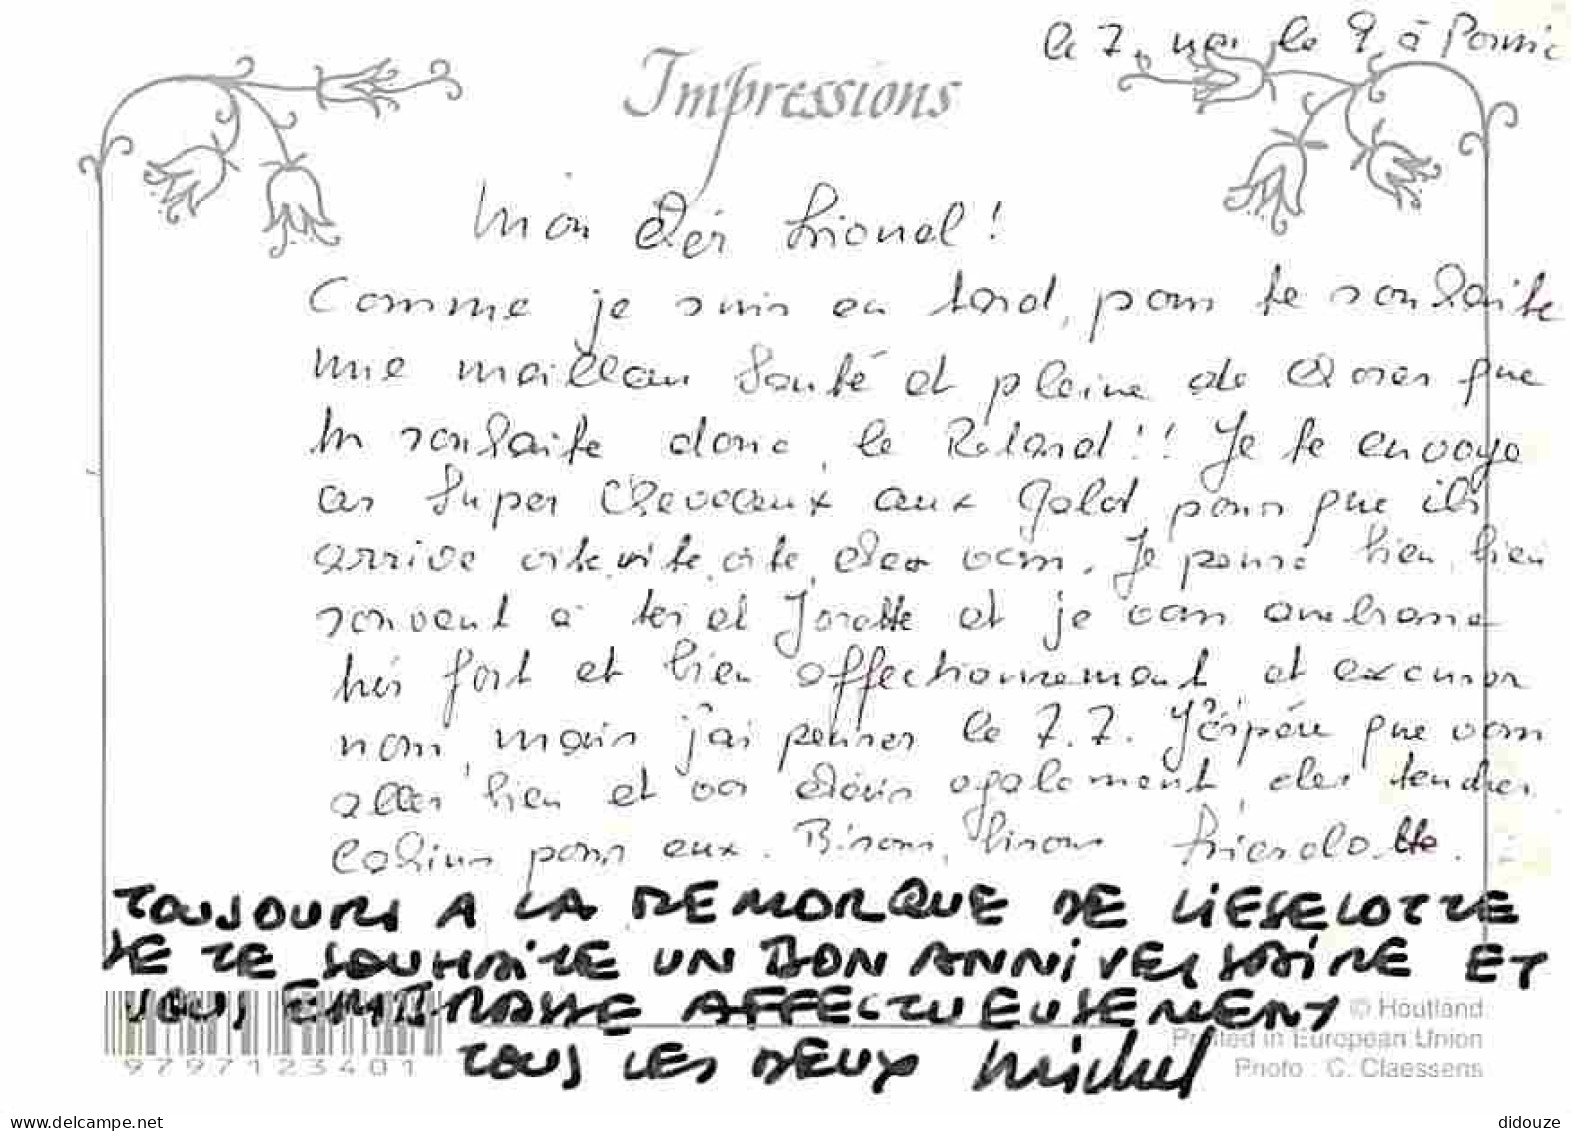 le 7. non le 9. à Pornic
Impressions
Mon chér Lional!
Comme je suis en tard, pour te souhaite
une meilleur Santé et pleine de choses que
tu souhaite donc, le Retard!! Je te envoye
ces Super Chevaux aux Galot pour que ils
arrive vite, vite, vite, chez vous. Je pense bien, bien
souvent à toi et Josette et je vous ambrasse
très fort et bien affectionnement, et excuser
nous, mais j'ai penser le 7.7. J'éspére que vous
aller bien et vos également, des tendres
calins pour eux. Bisous, bisous Lieselotte.
TOUJOURS A LA REMORQUE DE LIESELOTTE
JE TE SOUHAITE UN BON ANNIVERSAIRE ET
VOUS EMBRASSE AFFECTUEUSEMENT
TOUS LES DEUX Michel
© Houtland
Printed in European Union
Photo : C. Claessens
9797123401
www.delcampe.net
didouze